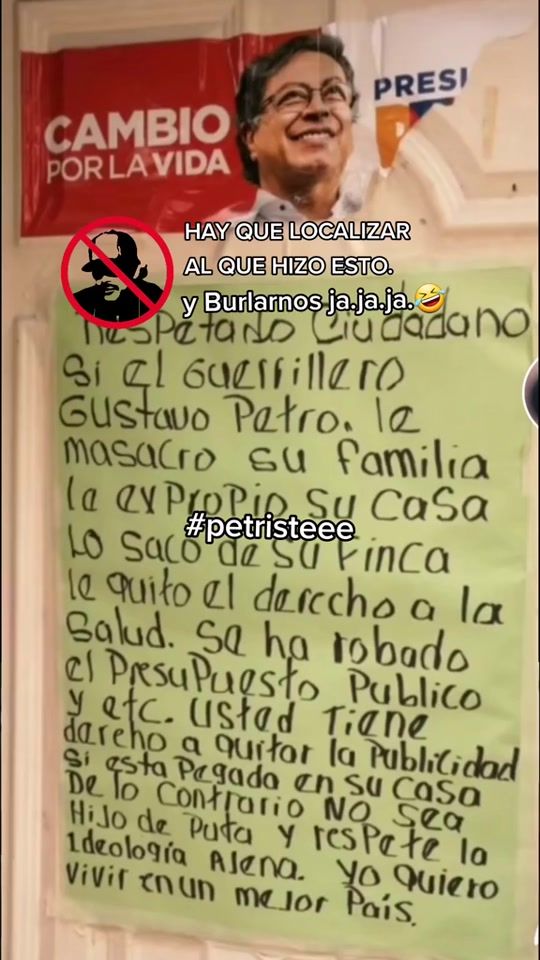 CAMBIO
POR LA VIDA
PRESI
HAY QUE LOCALIZAR
AL QUE HIZO ESTO.
y Burlarnos ja.ja.ja.🤣
Respetado Ciudadano
Si el Guerrillero
Gustavo Petro. le
masacro su familia
le expropio su casa
#petristeee
Lo saco de su Finca
le quito el dercc​ho a la
Salud. Se ha robado
el Presupuesto Publico
y etc. usted Tiene
darcho a quitar la Publicidad
Si esta Pegada en su casa
De lo contrario NO sea
Hijo de Puta y respete la
Ideología Alena. yo quiero
vivir en un mejor País.